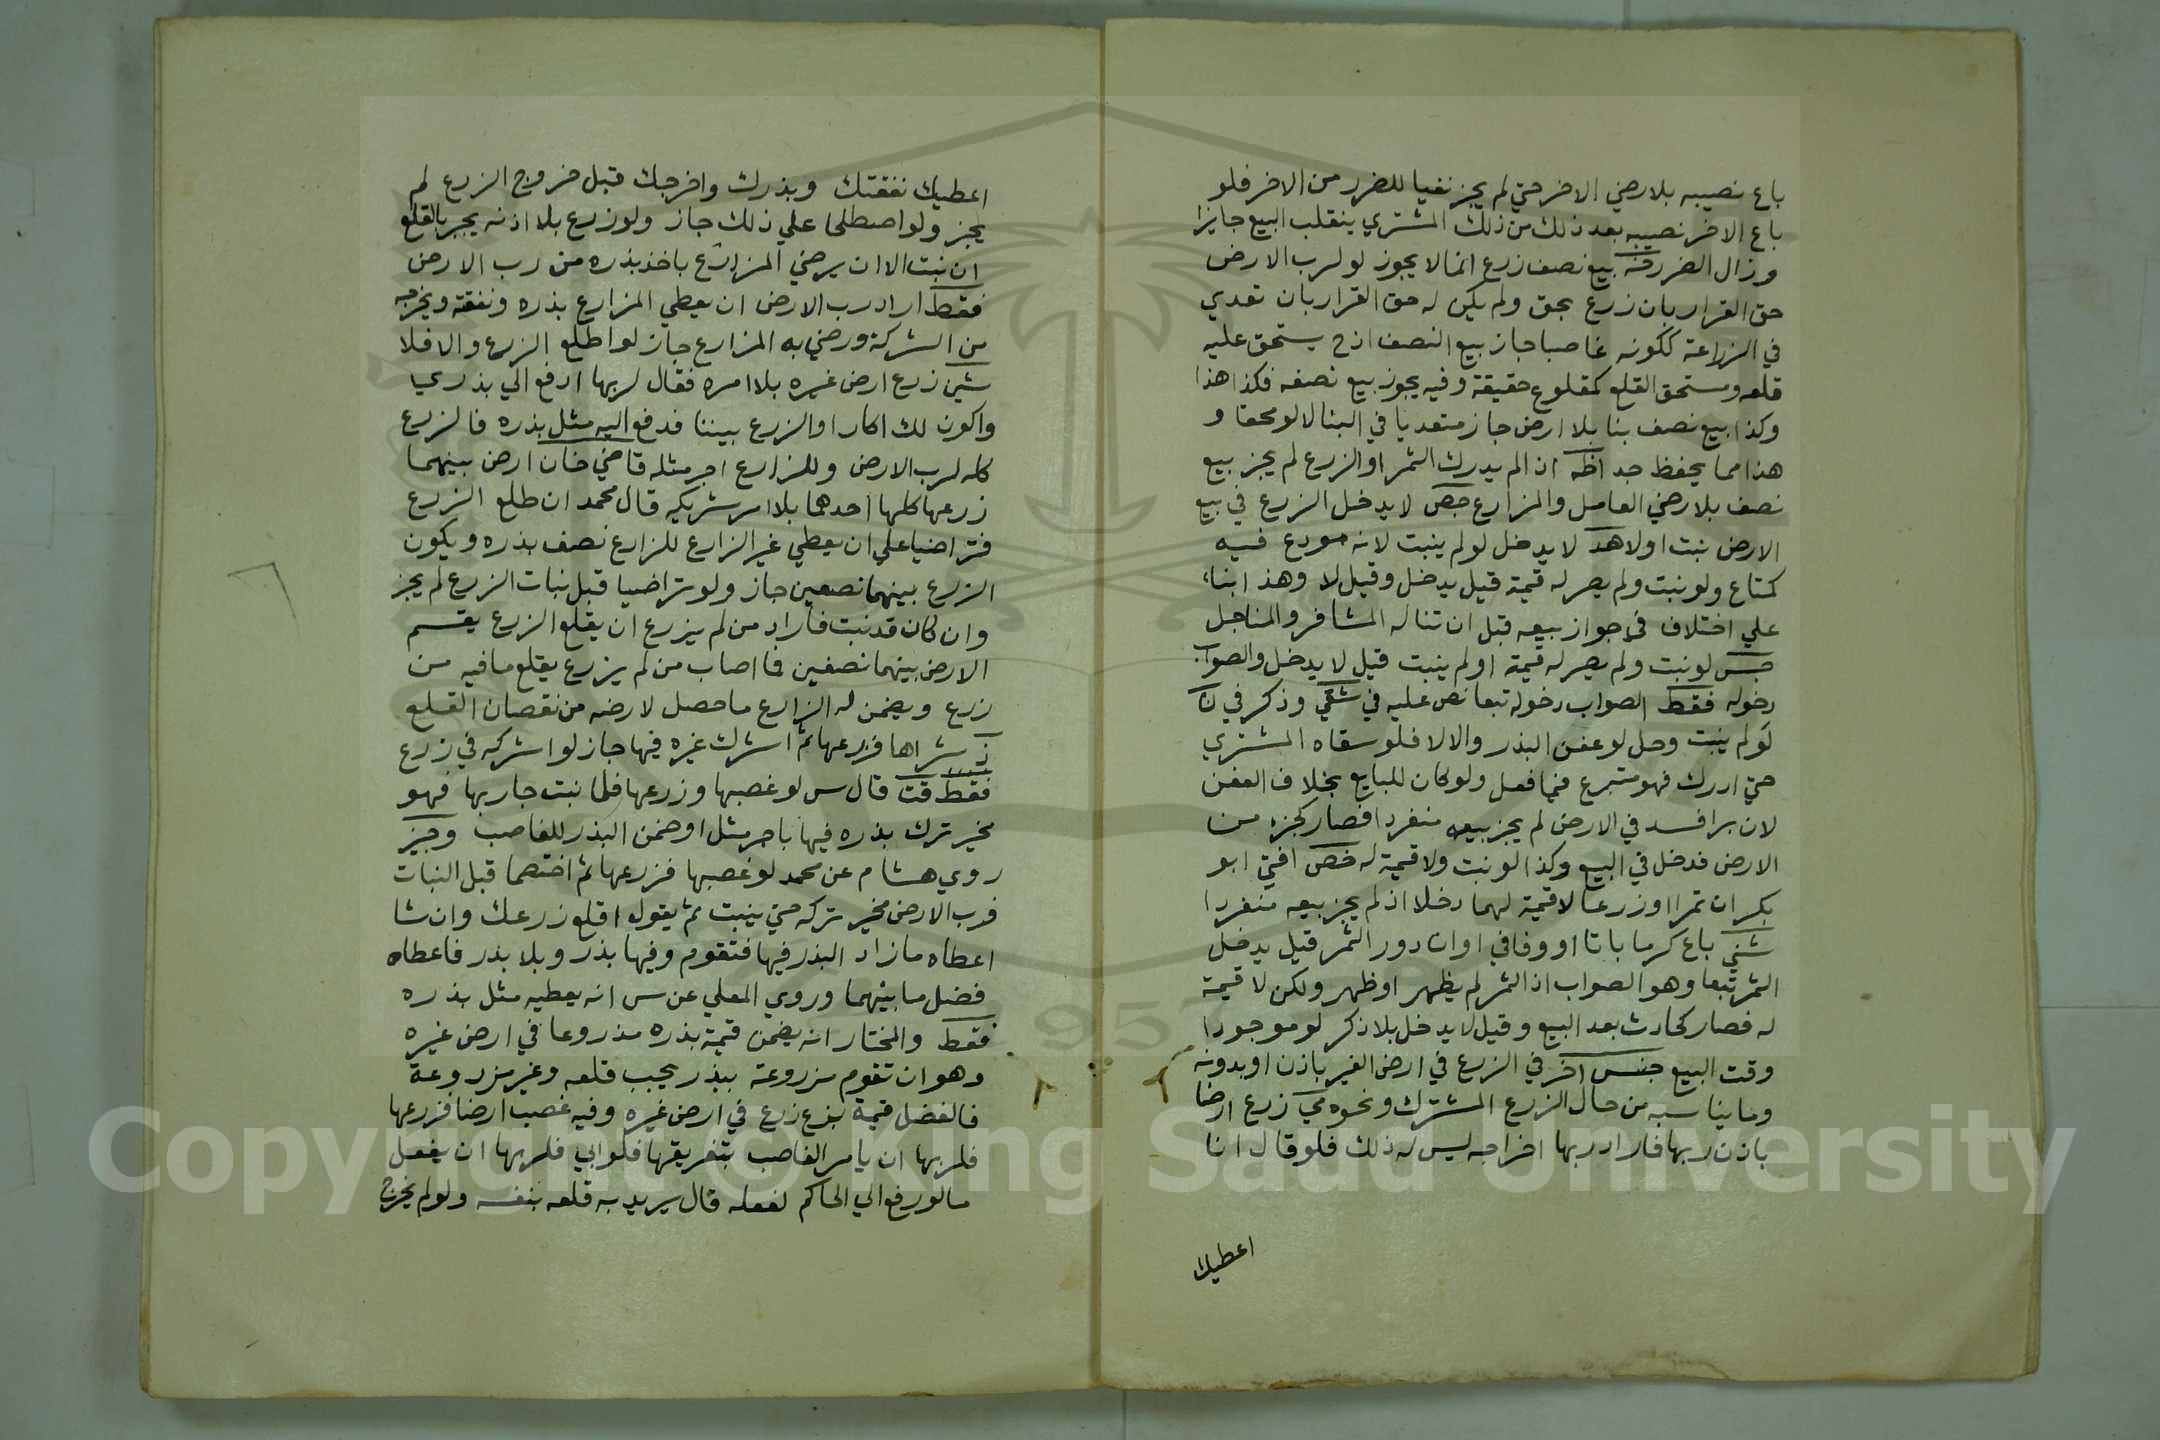 باع نصيبه بلا رضي الاخر حتي لم يجز نفيا للضرر من الاخر فلو
باع الاخر نصيبه بعد ذلك من ذلك المشتري ينقلب البيع جايزا
وزال الضرر فنه بيع نصف زرع انما لا يجوز لو لرب الارض
حق القرار بان زرع بحق ولم يكن له حق القرار بان تعدي
في الزراعة ككونه غاصبا جاز بيع النصف اذح يستحق عليه
قلعه ومستحق القلع كمقلوع حقيقة وفيه يجوز بيع نصفه فكذا هذا
وكذا بيع نصف بنا بلا ارض جاز متعديا في البنا لا لو محقا و
هذا مما يحفظ جدا ظه اذ الم يدرك الثمر او الزرع لم يجز بيع
نصف بلا رضي العامل والمزارع جص لا يدخل الزرع في بيع
الارض نبت اولا هد لا يدخل لو لم ينبت لانه مودع فيه
كمتاع ولو نبت ولم يصر له قيمة قيل يدخل وقيل لا وهذا بناء
علي اختلاف في جواز بيعه قبل ان تناله المشافر والمناجل
جس لو نبت ولم يصر له قيمة او لم ينبت قيل لا يدخل والصواب
دخوله فقط الصواب دخوله تبعا نص عليه في شقي وذكر في ن
لو لم ينبت دخل لو عفن البذر والا لا فلو سقاه المشتري
حتي ادرك فهو متبرع فيما فعل ولو كان للبايع بخلاف العفن
لان برا فسد في الارض لم يجز بيعه منفردا فصار كجزء من
الارض فدخل في البيع وكذا لو نبت ولا قيمة له خص افتي ابو
بكر ان ثمرا او زرعا لا قيمة لهما دخلا اذ لم يجز بيعه منفردا
شي باع كرما باتا او وفا في اوان دور الثمر قيل يدخل
الثمر تبعا وهو الصواب اذ الثمر لم يظهر او ظهر ولكن لا قيمة
له فصار كحادث بعد البيع وقيل لا يدخل بلا ذكر لو موجودا
وقت البيع جنس اخر في الزرع في ارض الغير باذن او بدونه
وما يناسبه من حال الزرع المشترك ونحوه مي زرع ارضا
باذن ربها فاراد ربها اخراجه ليس له ذلك فلو قال انا
اعطيك
اعطيك نفقتك وبذرك واخرجك قبل خروج الزرع لم
يجز ولو اصطلحا علي ذلك جاز ولو زرع بلا اذنه يجبر بالقلع
ان نبت الا ان يرضي المزارع باخذ بذره من رب الارض
فقط اراد رب الارض ان يعطي المزارع بذره ونفقة ويخرجه
من الشركة ورضي به المزارع جاز لو اطلع الزرع والا فلا
شي زرع ارض غيره بلا امره فقال لربها ادفع الي بذري
واكون لك اكارا والزرع بيننا فدفع اليه مثل بذره فالزرع
كله لرب الارض وللزارع اجر مثله قاضي خان ارض بينهما
زرعها كلها احدهما بلا امر شريكه قال محمد ان طلع الزرع
فتراضيا علي ان يعطي غير الزارع للزارع نصف بذره ويكون
الزرع بينهما نصفين جاز ولو تراضيا قبل نبات الزرع لم يجز
وان كان قد نبت فاراد من لم يزرع ان يقلع الزرع يقسم
الارض بينهما نصفين فما اصاب من لم يزرع يقلع ما فيه من
زرع ويضمن له الزارع ما حصل لارضه من نقصان القلع
ذ شراها فزرعها ثم اشرك غيره فيها جاز لو اشركه في زرع
فقط قت قال س لو غصبها وزرعها فلما نبت جا ربها فهو
مخير ترك بذره فيها باجر مثل او ضمن البذر للغاصب وجيز
روي هشام عن محمد لو غصبها فزرعها ثم اختصما قبل النبات
فرب الارض مخير تركه حتي ينبت ثم يقول اقلع زرعك وان شا
اعطاه ما زاد البذر فيها فتقوم وفيها بذر وبلا بذر فاعطاه
فضل ما بينهما وروي المعلي عن س انه يعطيه مثل بذره
فقط والمختار انه يضمن قيمة بذره مذروعا في ارض غيره
وهو ان تقوم مزروعة ببذر يجب قلعه وغير مزروعة
فالفضل قيمة بزع زرع في ارض غيره وفيه غصب ارضا فزرعها
فلربها ان يامر الغاصب بتفريقها فلو ابي فلربها ان يفعل
ما لو رفع الي الحاكم لفعله قال يريد به قلعه بنفسه ولو لم يخرج
Copyright © King Saud University
1957